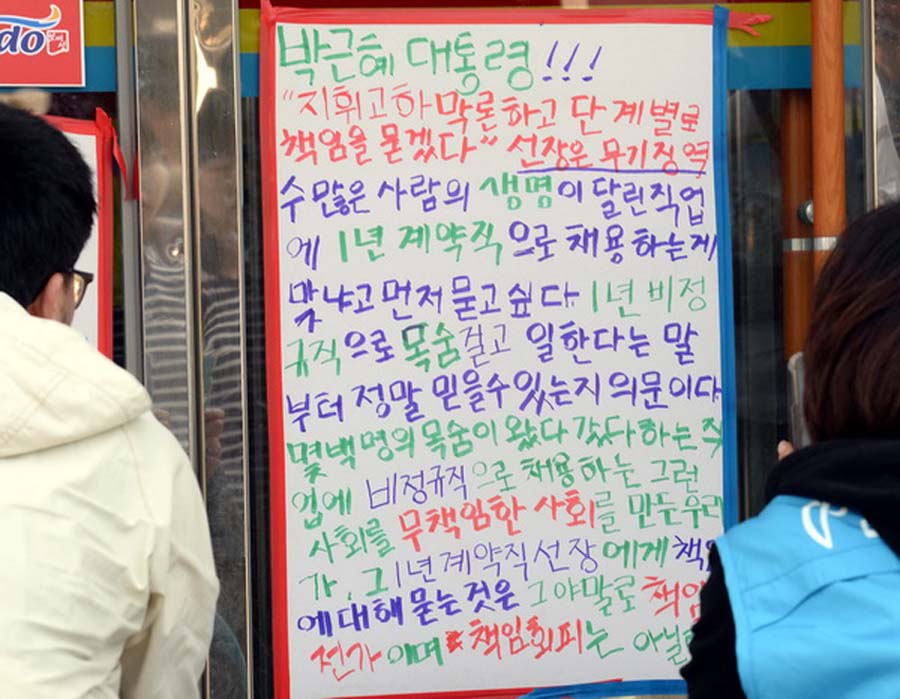 do
박근혜 대통령!!!
"지휘고하 막론하고 단계별로
책임을 묻겠다" 선장은 무기징역
수 많은 사람의 생명이 달린직업
에 1년 계약직으로 채용하는게
맞냐고 먼저 묻고 싶다. 1년 비정
규직으로 목숨걸고 일한다는 말
부터 정말 믿을수있는지 의문이다
몇백명의 목숨이 왔다갔다하는 직
업에 비정규직으로 채용하는 그런
사회를 무책임한 사회를 만든우리
가, 그 1년계약직선장에게
에대해 묻는것은 그야말로 책임
전가이며 책임회피는